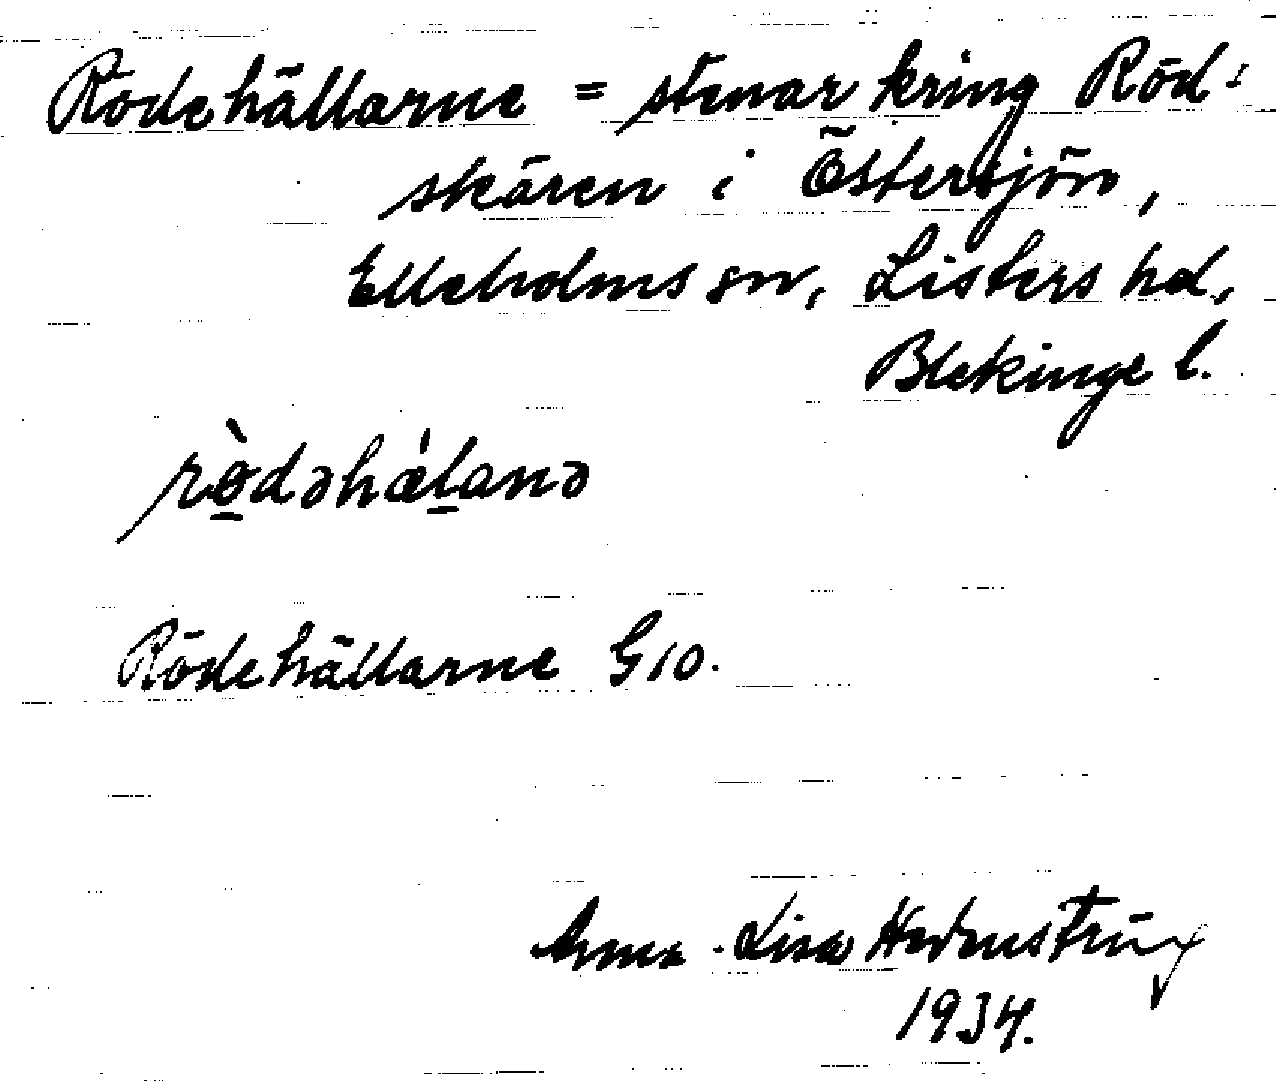 Rödehällarne = stenar kring Röd-
skären i Östersjön,
Elleholms sn, Listers hd,
Blekinge l.
rö̀dəhá̤landə
Rödehällarne G10.
Anna-Lisa
1934.